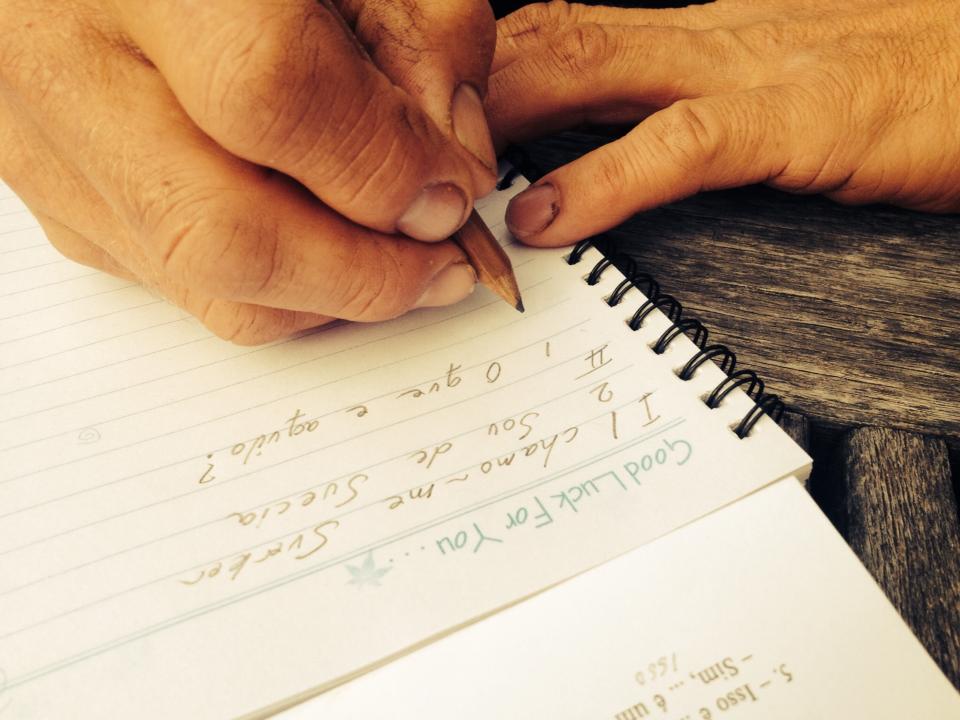 Good Luck For You....
I 1 chamo-me Sverker
2 Sou de Svecia
II
1 O que e aquilo?
5. – Isso é ...
– Sim, ... é um
Isso